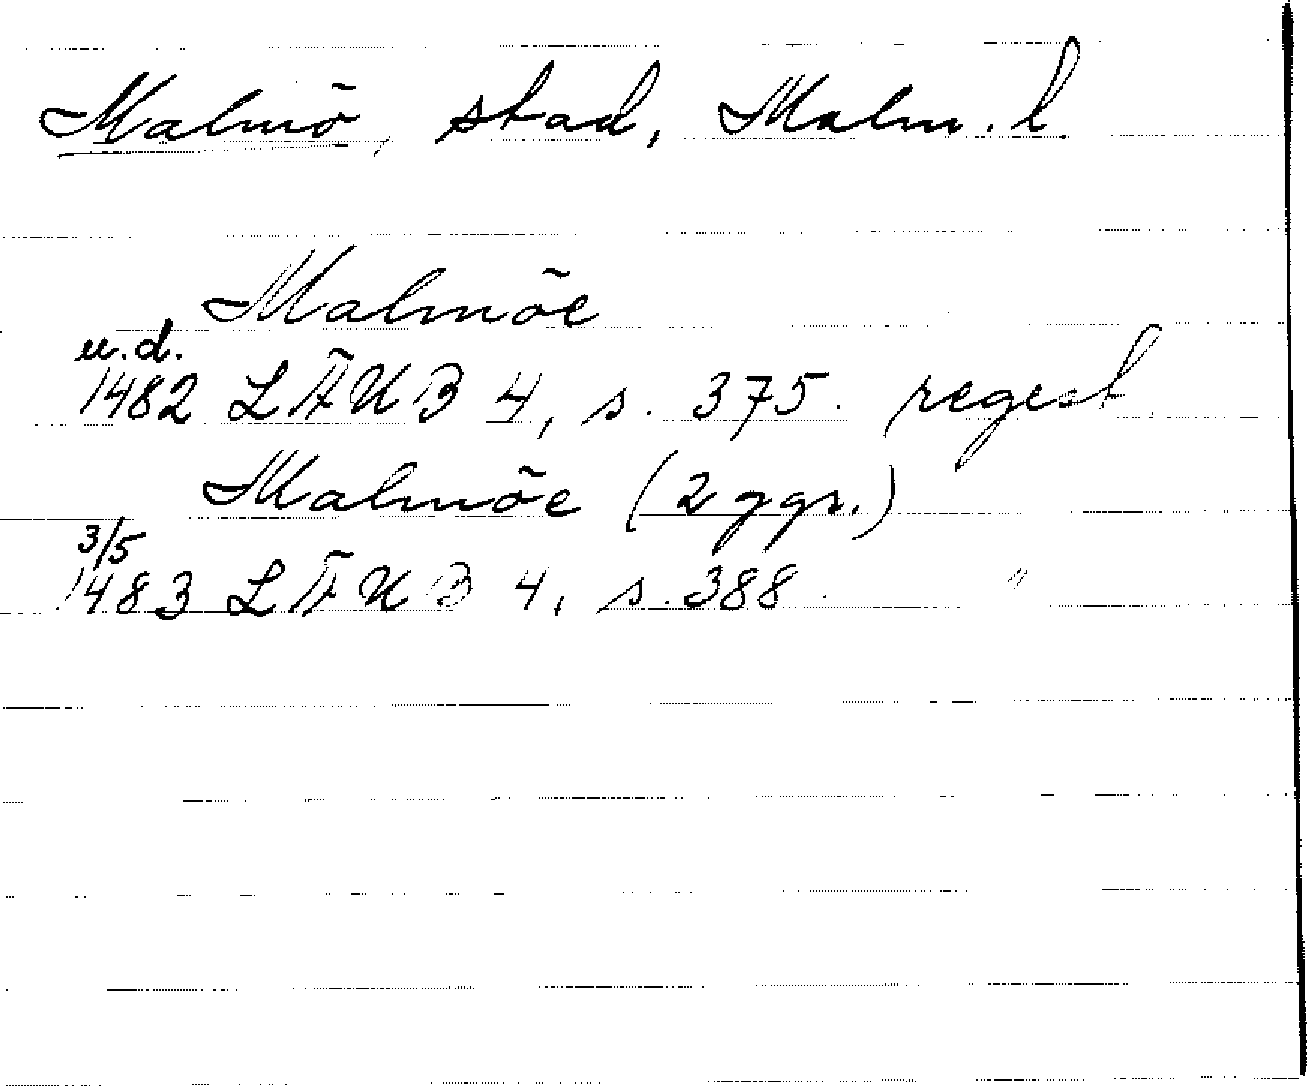 Malmö, stad, Malm. l.
Malmöe
u.d.
1482 LÄUB 4, s. 375. regest
Malmöe (2 ggr.)
3/5
1483 LÄUB 4, s. 388 "